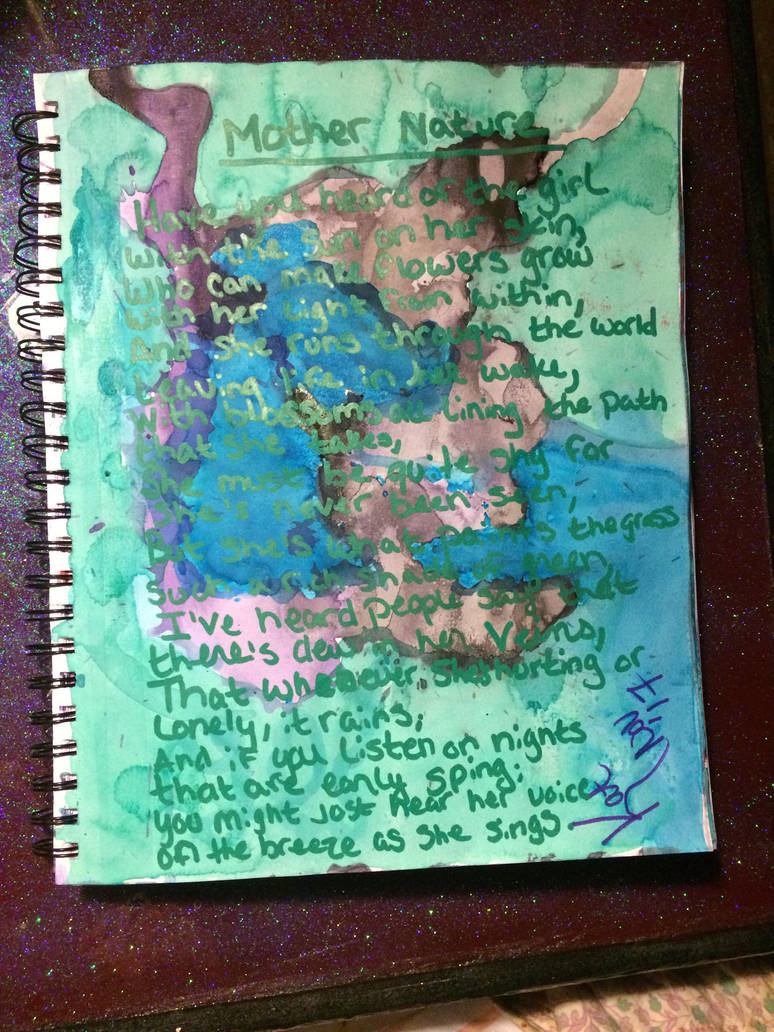 Mother Nature
Have you heard of the girl
with the sun on her skin,
Who can make flowers grow
with her light from within,
And she runs through the world
Leaving life in her wake,
With blossoms all lining the path
that she takes,
She must be quite shy for
she's never been seen,
But she's what paints the grass
such a rich shade of green,
I've heard people say that
there's dew in her veins,
That whenever she's hurting or
Lonely, it rains;
And if you listen on nights
that are early sping;
you might just hear her voice
on the breeze as she sings